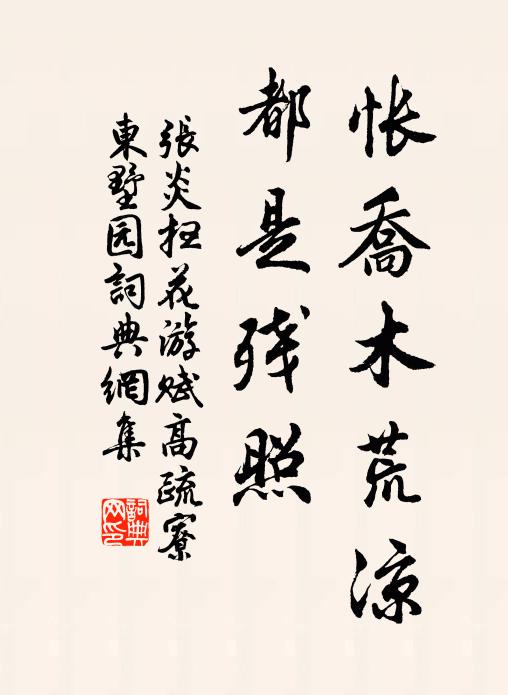 帐乔木荒凉
都是残照
張炎扫花游赋高疏寮
東墅园詞典網集
詞典
网印